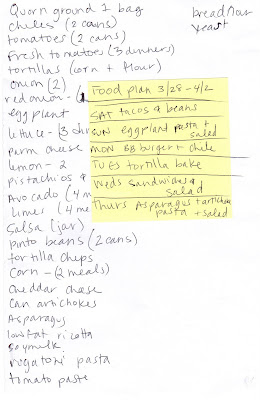 Quorn ground 1 bag
chiles (2 cans)
tomatoes (2 cans)
Fresh tomatoes (3 dinners)
tortillas (corn + flour)
onion (2)
red onion - (
eggplant
lettuce - (3
parm cheese
lemon - 2
pistachios
Avocado (4 m
limes (4 me
Salsa (jar)
pinto beans (2 cans)
tortilla chips
Corn - (2 meals)
Cheddar cheese
Can artichokes
Asparagus
lowfat ricotta
Soymilk
rigatoni pasta
tomato paste
bread/naan
yeast
Food plan 3/28-4/2
SAT tacos & beans
SUN eggplant pasta + salad
MON BB burger + chile
TUES tortilla bake
Weds Sandwiches & salad
Thurs Asparagus + artichoke
pasta + salad